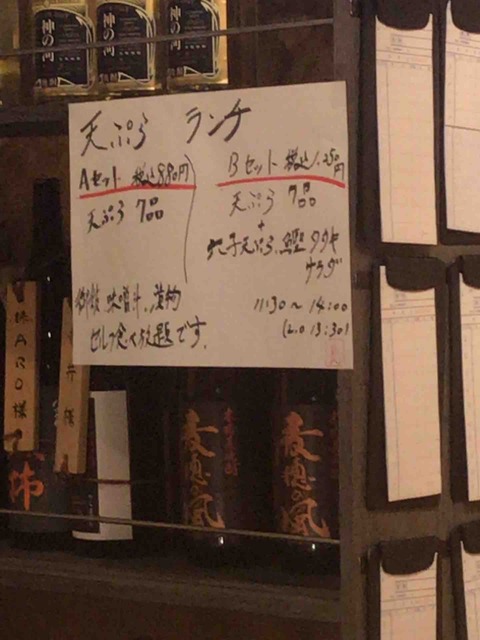 神の河
神の河
神の河
天ぷら ランチ
Aセット 税込880円
天ぷら 7品
Bセット 税込1,250円
天ぷら 7品
+
穴子天ぷら、鰹タタキ
サラダ
御飯、味噌汁、漬物
セルフ食べ放題です。
11:30～14:00
(L.o 13:30)
麦穂の風
麦穂の風